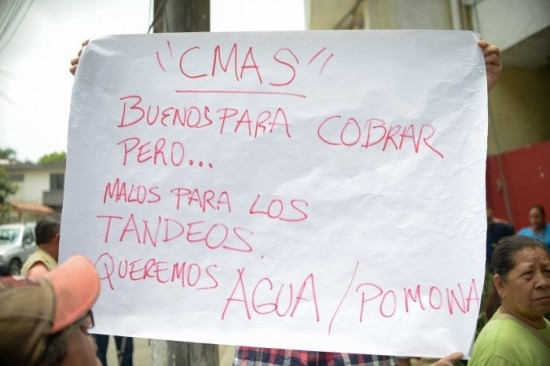 "CMAS"
BUENOS PARA COBRAR
PERO...
MALOS PARA LOS
TANDEOS.
QUEREMOS AGUA/POMONA